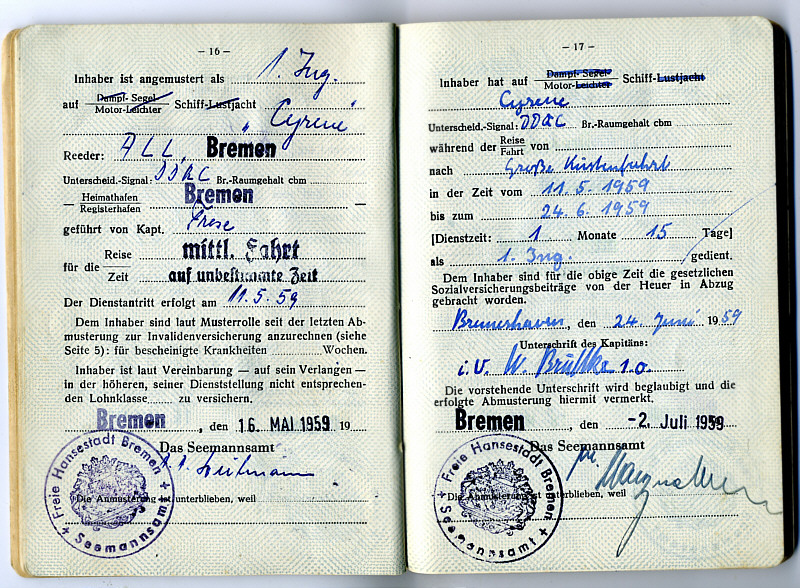 – 16 –
Inhaber ist angemustert als 1. Ing.
auf Dampf- Segel Schiff-Lustjacht
Motor-Leichter
"Cyrene"
Reeder: ALL, Bremen
Unterscheid.-Signal: DDRC Br.-Raumgehalt cbm
Heimathafen Bremen
Registerhafen
geführt von Kapt. Frese
für die Reise mittl. Fahrt
Zeit auf unbestimmte Zeit
Der Dienstantritt erfolgt am 11.5.59
Dem Inhaber sind laut Musterrolle seit der letzten Ab-
musterung zur Invalidenversicherung anzurechnen (siehe
Seite 5): für bescheinigte Krankheiten Wochen.
Inhaber ist laut Vereinbarung — auf sein Verlangen —
in der höheren, seiner Dienststellung nicht entsprechen-
den Lohnklasse zu versichern.
Bremen, den 16. MAI 1959 19
Das Seemannsamt
Die Anmusterung ist unterblieben, weil
Freie Hansestadt Bremen
+ Seemannsamt +
– 17 –
Inhaber hat auf Dampf- Segel Schiff-Lustjacht
Motor-Leichter
Cyrene
Unterscheid.-Signal: DDRC Br.-Raumgehalt cbm
während der Reise von
Fahrt
nach Große Küstenfahrt
in der Zeit vom 11.5.1959
bis zum 24.6.1959
[Dienstzeit: 1 Monate 15 Tage]
als 1. Ing. gedient.
Dem Inhaber sind für die obige Zeit die gesetzlichen
Sozialversicherungsbeiträge von der Heuer in Abzug
gebracht worden.
Bremerhaven, den 24. Juni 1959
Unterschrift des Kapitäns:
i.V. W. 1.O.
Die vorstehende Unterschrift wird beglaubigt und die
erfolgte Abmusterung hiermit vermerkt.
Bremen, den -2. Juli 1959
Das Seemannsamt
Die Anmusterung ist unterblieben, weil
Freie Hansestadt Bremen
+ Seemannsamt +